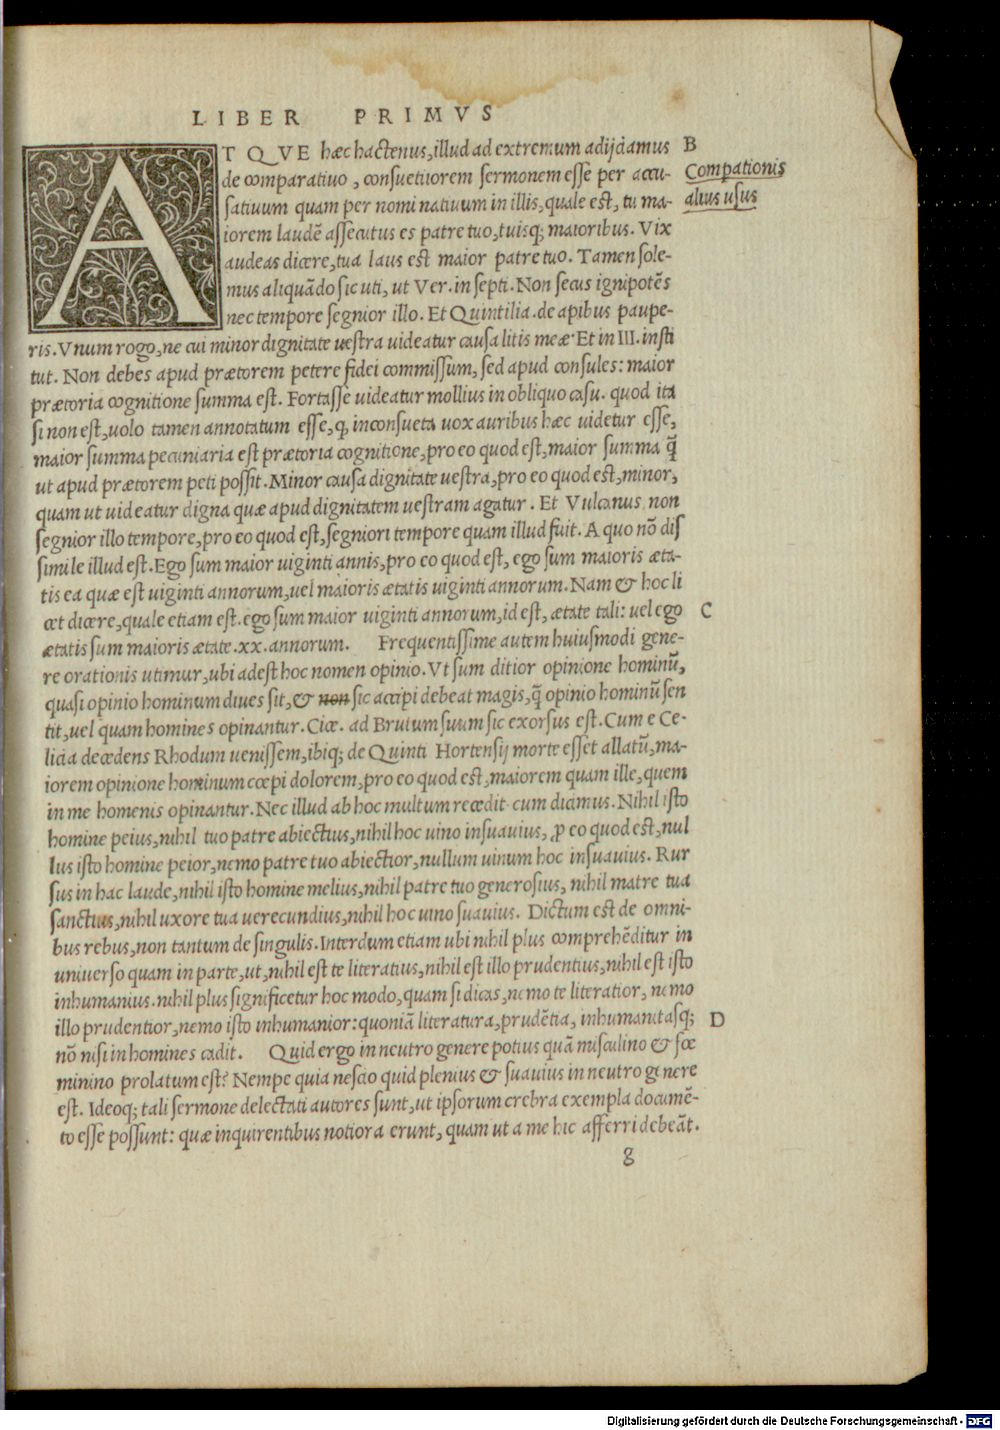 LIBER PRIMVS
AT QVE hæc hactenus, illud ad extremum adijciamus B
de comparatiuo, consuetiorem sermonem esse per accu- Compationis
satiuum quam per nominatiuum in illis, quale est, tu ma- alius usus
iorem laudē assecutus es patre tuo, tuisq; maioribus. Vix
audeas dicere, tua laus est maior patre tuo. Tamen sole-
mus aliquādo sic uti, ut Ver. in septi. Non secus ignipotēs
nec tempore segnior illo. Et Quintilia. de apibus paupe-
ris. Vnum rogo, ne cui minor dignitate uestra uideatur causa litis meæ. Et in III. insti
tut. Non debes apud prætorem petere fidei commissum, sed apud consules: maior
prætoria cognitione summa est. Fortasse uideatur mollius in obliquo casu. quod ita
si non est, uolo tamen annotatum esse, q, inconsueta uox auribus hæc uidetur esse,
maior summa pecuniaria est prætoria cognitione, pro eo quod est, maior summa q̄
ut apud prætorem peti possit. Minor causa dignitate uestra, pro eo quod est, minor,
quam ut uideatur digna quæ apud dignitatem uestram agatur. Et Vulcanus non
segnior illo tempore, pro eo quod est, segniori tempore quam illud fuit. A quo nō dis
simile illud est. Ego sum maior uiginti annis, pro eo quod est, ego sum maioris æta-
tis ea quæ est uiginti annorum, uel maioris ætatis uiginti annorum. Nam & hoc li
cet dicere, quale etiam est. ego sum maior uiginti annorum, id est, ætate tali: uel ego C
ætatis sum maioris ætate .xx. annorum. Frequentissime autem huiusmodi gene-
re orationis utimur, ubi adest hoc nomen opinio. Vt sum ditior opinione hominū,
quasi opinio hominum diues sit, & non sic accipi debeat magis, q̄ opinio hominū sen
tit, uel quam homines opinantur. Cice. ad Brutum suum sic exorsus est. Cum e Ce-
licia decedens Rhodum uenissem, ibiq; de Quinti Hortensij morte esset allatū, ma-
iorem opinione hominum cœpi dolorem, pro eo quod est, maiorem quam ille, quem
in me homenis opinantur. Nec illud ab hoc multum recedit cum dicimus. Nihil isto
homine peius, nihil tuo patre abiectius, nihil hoc uino insuauius, ꝓ eo quod est, nul
lus isto homine peior, nemo patre tuo abiectior, nullum uinum hoc insuauius. Rur
sus in hac laude, nihil isto homine melius, nihil patre tuo generosius, nihil matre tua
sanctius, nihil uxore tua uerecundius, nihil hoc uino suauius. Dictum est de omni-
bus rebus, non tantum de singulis. Interdum etiam ubi nihil plus comprehēditur in
uniuerso quam in parte, ut, nihil est te literatius, nihil est illo prudentius, nihil est isto
inhumanius. nihil plus significetur hoc modo, quam si dicas, nemo te literatior, nemo
illo prudentior, nemo isto inhumanior: quoniā literatura, prudētia, inhumanitasq; D
nō nisi in homines cadit. Quid ergo in neutro genere potius quā masculino & fœ
minino prolatum est? Nempe quia nescio quid plenius & suauius in neutro genere
est. Ideoq; tali sermone delectati autores sunt, ut ipsorum crebra exempla documē-
to esse possunt: quæ inquirentibus notiora erunt, quam ut a me hic afferri debeāt.
g
Digitalisierung gefördert durch die Deutsche Forschungsgemeinschaft - DFG